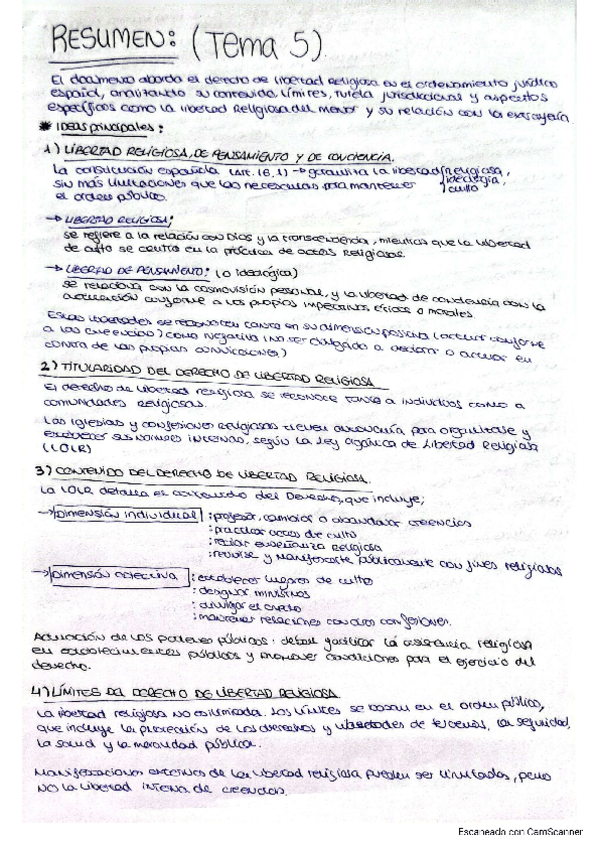 RESUMEN: (Tema 5).
El documento aborda el derecho de libertad Religiosa en el ordenamiento jurídico
español, analizando su contenido, límites, tutela jurisdiccional y aspectos
específicos como la libertad Religiosa del menor y su relación con la extranjería
* IDEAS principales:
1) LIBERTAD RELIGIOSA, DE PENSAMIENTO Y DE CONCIENCIA.
La constitución española (art. 16.1) → garantiza la libertad religiosa,
ideología,
sin más limitaciones que las necesarias para mantener culto
el orden público.
→ LIBERTAD RELIGIOSA:
se refiere a la relación con Dios y la transcendencia, mientras que la libertad
de culto se centra en la práctica de actos Religiosos.
→ LIBERTAD DE PENSAMIENTO: (o ideológica)
se relaciona con la cosmovisión personal, y la libertad de conciencia con la
actuación conforme a los propios imperativos éticos o morales.
Estas libertades se reconocen tanto en su dimensión positiva (actuar conforme
a las creencias) como negativa (no ser obligado a declarar o actuar en
contra de las propias convicciones)
2) TITULARIDAD DEL DERECHO DE LIBERTAD RELIGIOSA
El derecho de libertad religiosa se reconoce tanto a individuos como a
comunidades religiosas.
Las Iglesias y confesiones Religiosas tienen autonomía para organizarse y
establecer sus normas internas, según la Ley orgánica de Libertad Religiosa
(LOLR)
3) CONTENIDO DEL DERECHO DE LIBERTAD RELIGIOSA.
La LOLR detalla el contenido del Derecho, que incluye;
→ Dimensión individual : profesar, cambiar o abandonar creencias
: practicar actos de culto
: recibir enseñanza Religiosa
: reunirse y Manifestarse públicamente con fines religiosos
→ Dimensión colectiva : establecer lugares de culto
: designar ministros
: divulgar el credo
: mantener relaciones con otras confesiones.
Actuación de los poderes públicos: deben facilitar la asistencia religiosa
en establecimientos públicos y promover condiciones para el ejercicio del
derecho.
4) LÍMITES DEL DERECHO DE LIBERTAD RELIGIOSA.
La libertad religiosa no es ilimitada. Los límites se basan en el orden público,
que incluye la protección de los derechos y libertades de terceros, la seguridad,
la salud y la moralidad pública.
Manifestaciones externas de la libertad religiosa pueden ser limitadas, pero
NO la libertad interna de creencias.
Escaneado con CamScanner